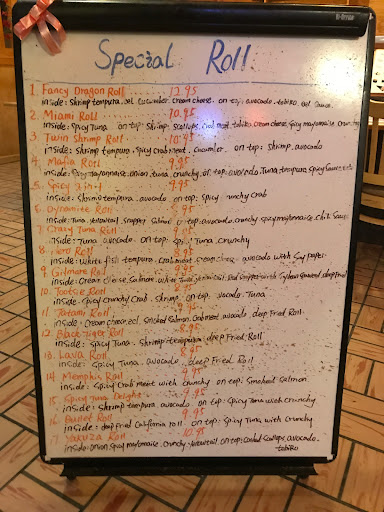 Special Roll
1. Fancy Dragon Roll 12.95
inside: Shrimp tempura. eel. cucumber. cream cheese. on top: avocado. tobiko. eel Sauce.
2. Miami Roll 10.95
inside: Spicy Tuna on top: Shrimp. Scallops. Crab meat. tobiko. cream cheese. Spicy mayonnaise
3. Twin Shrimp Roll 10.95
inside: Shrimp tempura. Spicy Crab meat. Cucumber. on top: Shrimp. avocado
4. Mafia Roll 9.95
inside: Spicy mayonnaise. onion. tuna. crunchy. on top: avocado. Tuna. tempura
5. Spicy 2 in 1 9.95
inside: Shrimp tempura. avocado on top: spicy crunchy Crab
6. Dynamite Roll
inside: Tuna. Yellowtail. snapper. Salmon. on top: avocado. crunchy. spicy mayonnaise.
7. Crazy Tuna Roll 9.95
inside: Tuna. avocado. on top: spicy Tuna. crunchy
8. Hero Roll 9.95
inside: white fish tempura. Crab meat. cream cheese. avocado with Soy paper
9. Gilmore Roll 9.95
inside: Cream cheese. Salmon. white Tuna. deep Fried
10. Tootsie Roll 9.95
inside: Spicy Crunchy Crab. Shrimp. on top: avocado. Tuna
11. Tatami Roll 9.95
inside: Cream cheese. eel. Smoked Salmon. Crab meat. avocado. deep Fried Roll.
12. Black Tiger Roll 8.95
inside: spicy Tuna. Shrimp tempura. deep Fried Roll
13. Lava Roll 8.95
inside: Spicy Tuna. avocado. deep Fried Roll
14. Memphis Roll 9.95
inside: Spicy Crab meat with crunchy on top: Smoked Salmon
15. Spicy Tuna Delight 9.95
inside: Shrimp tempura. avocado on top: Spicy Tuna with crunchy
16. Roll 9.95
inside: deep Fried California roll. on top: Spicy Tuna with Crunchy
Yakuza Roll 10.95
inside: onion. spicy mayonnaise. crunchy. yellowtail on top: cooked scallops. avocado. tobiko